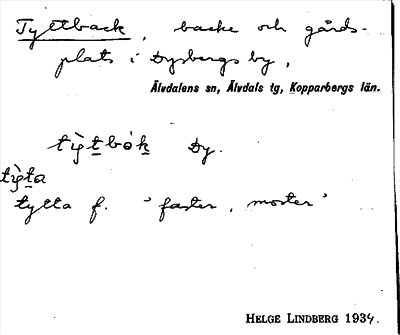 Tyttback, backe och gårds-
plats i Dysbergs by,
Älvdalens sn, Älvdals tg, Kopparbergs län.
ty̓tbȯk Dy.
ty̓ta
tytta f. "faster, moster"
HELGE LINDBERG 1934.